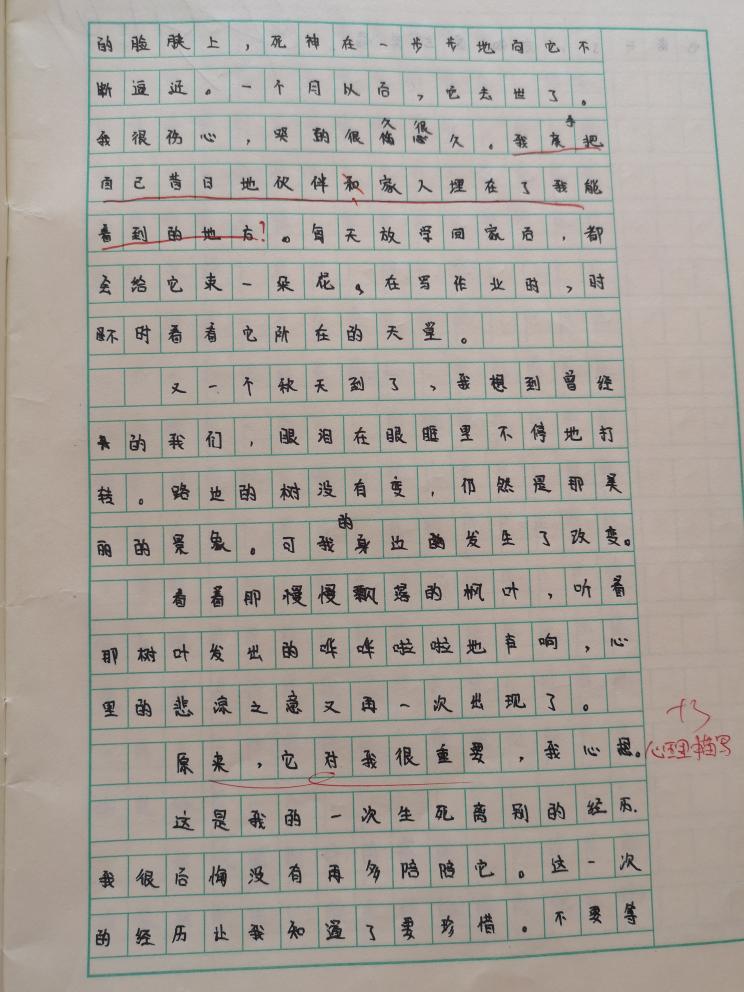 的脸肤上，死神在一步步地向它不
断逼近。一个月以后，它去世了。
我很伤心，哭的很久很久。我亲手把
自己昔日地伙伴和家人埋在了我能
看到的地方？。每天放学回家后，都
会给它束一朵花。在写作业时，时
不时看看它所在的天堂。
又一个秋天到了，我想到曾经
的我们，眼泪在眼眶里不停地打
转。路边的树没有变，仍然是那美
丽的景象。可我的身边发生了改变。
看着那慢慢飘落的枫叶，听着
那树叶发出的哗哗啦啦地声响，心
里的悲凉之意又再一次出现了。
原来，它对我很重要，我心想。
心理描写
这是我的一次生死离别的经历.
我很后悔没有再多陪陪它。这一次
的经历让我知道了要珍惜。不要等